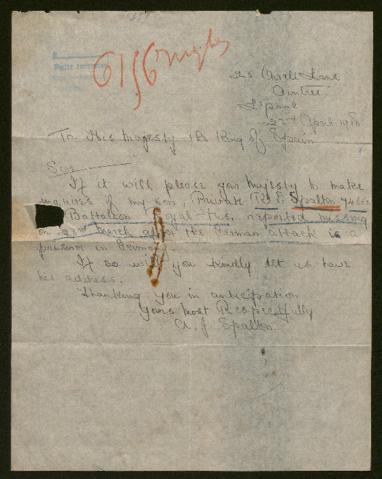 6156
25
Aintree
L'pool
22nd April 1918
To His Majesty the King of Spain
Sir
If it will please your majesty to make
inquiries if my son, Private R. E. Spalton
Battalion reported missing
on March after the German attack is a
prisoner in Germany
If so will you kindly let us have
his address.
Thanking you in anticipation
Yours most Respectfully
A. J. Spalton